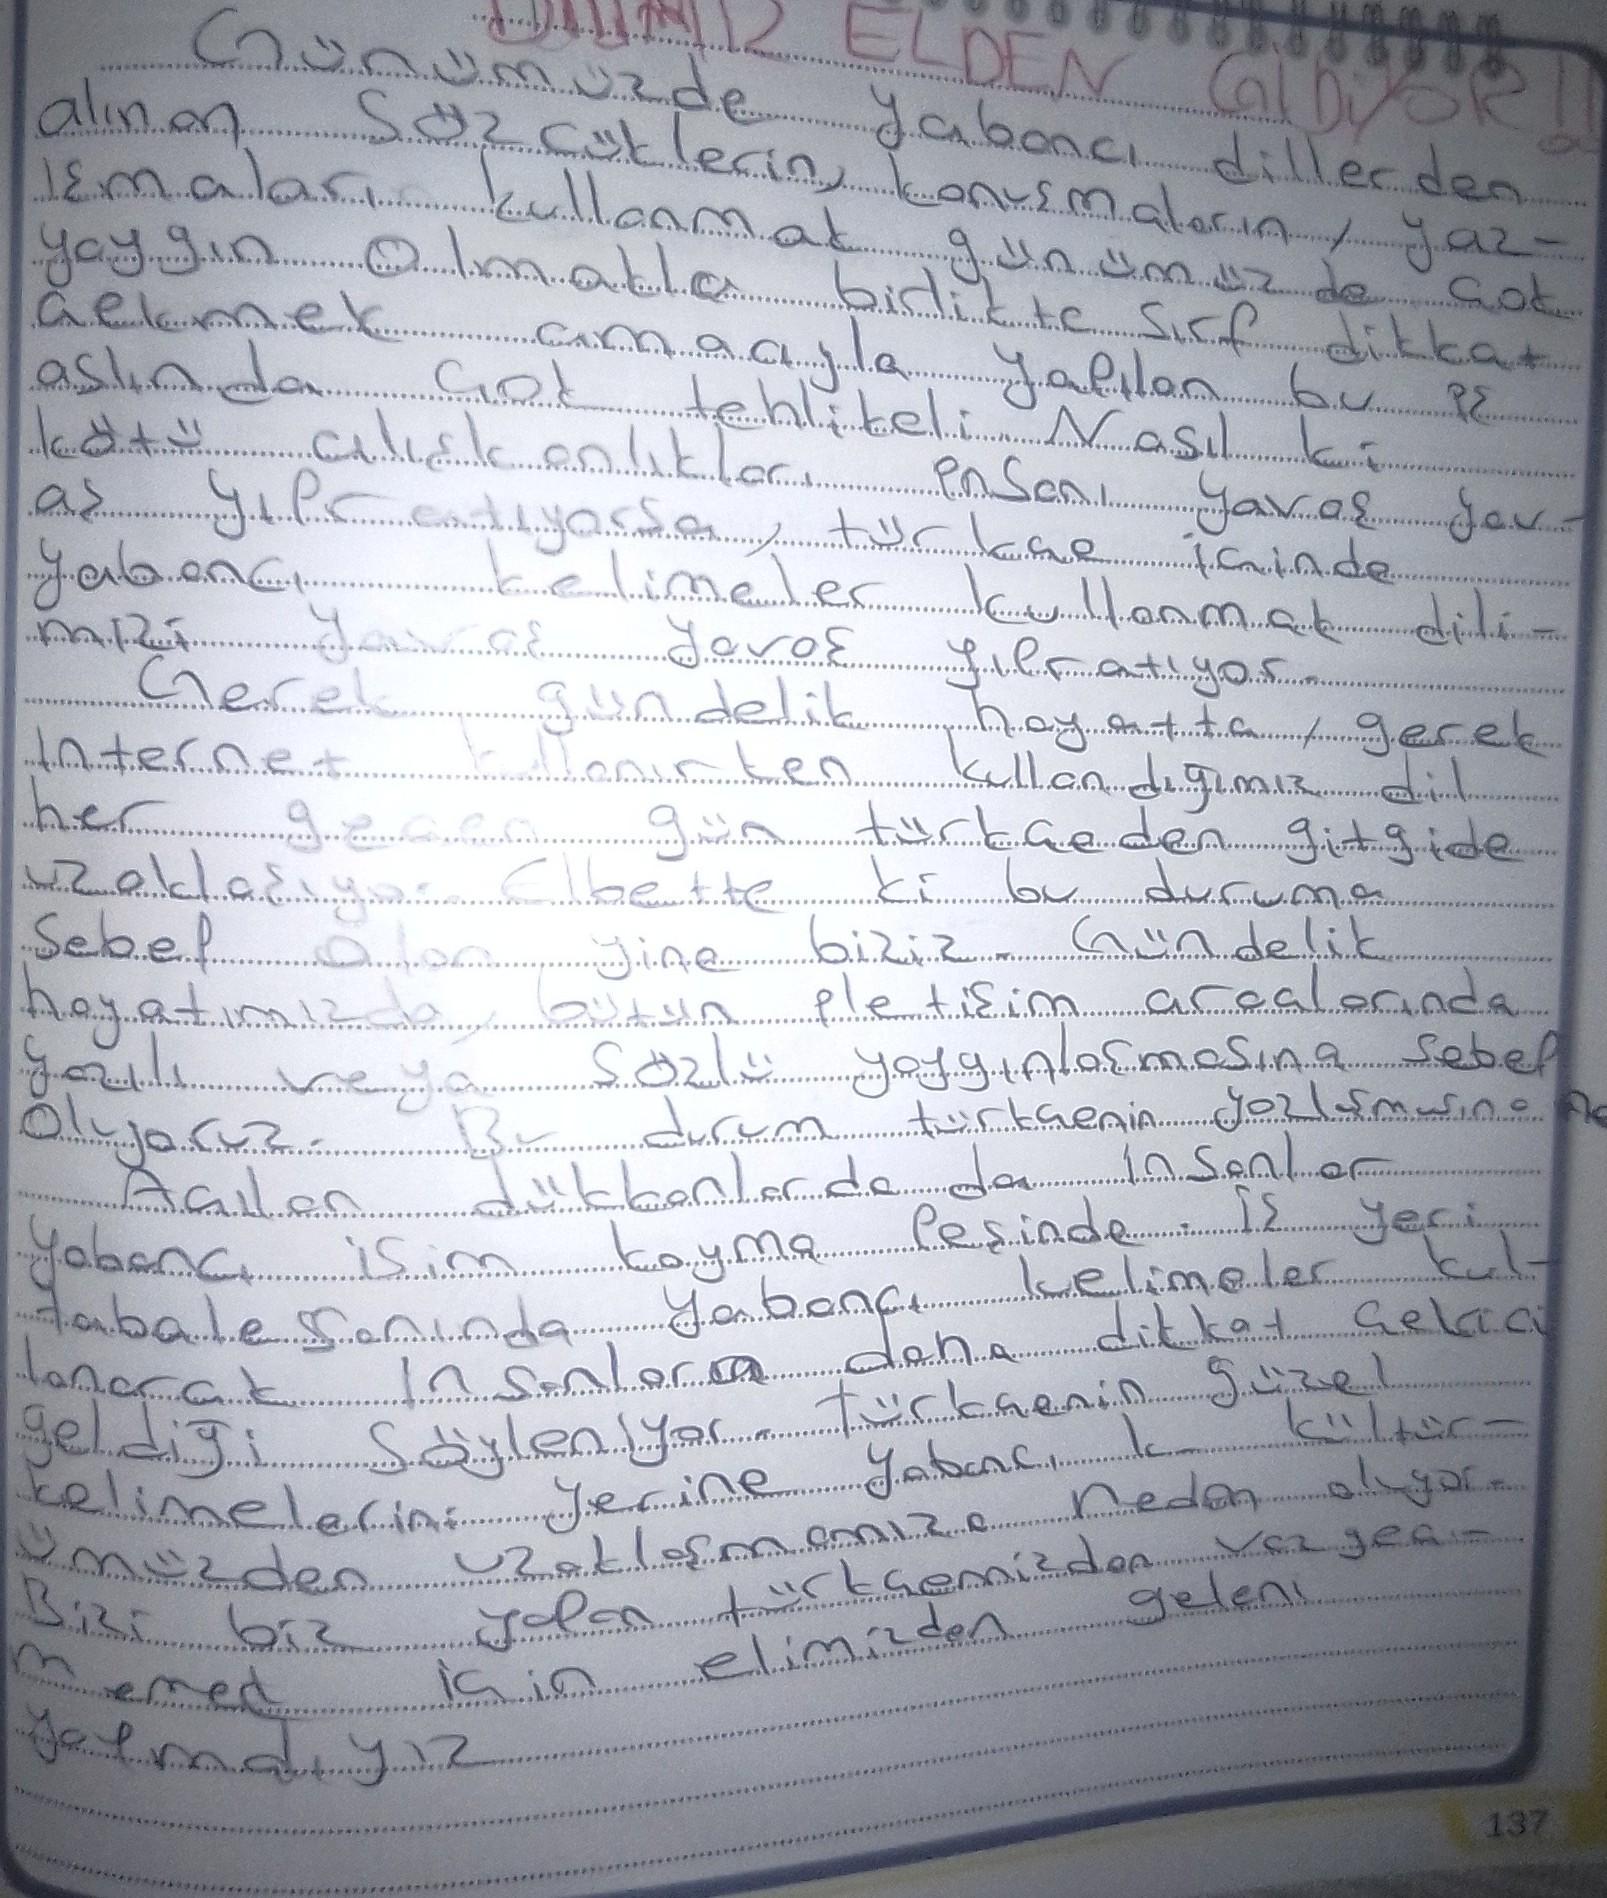 DİLİMİZ ELDEN GİDİYOR!!
Günümüzde yabancı dillerden
alınan sözcüklerin, konuşmaların, yaz-
ışmaları kullanmak günümüzde çok
yaygın olmakla birlikte sırf dikkat
çekmek amacıyla yapılan bu iş
aslında çok tehlikeli Nasıl ki
kötü alışkanlıklar insanı yavaş yav-
aş yıpratıyorsa, türkçe içinde
yabancı kelimeler kullanmak dili-
mizi yavaş yavaş yıpratıyor.
Gerek gündelik hayatta, gerek
İnternet kullanırken kullandığımız dil
her geçen gün türkçeden gitgide
uzaklaşıyor. Elbette ki bu duruma
sebep olan yine biziz. Gündelik
hayatımızda, bütün iletişim araçlarında
yazılı veya sözlü yaygınlaşmasına sebep
oluyoruz. Bu durum türkçenin yozlşmusına ne
Açılan dükkanlarda da insanlar
yabancı isim koyma peşinde. İş yeri
tabalesanında yabancı kelimeler kul-
lanarak insanlara daha dikkat çekici
geldiği söyleniyor. türkçenin güzel
kelimelerini yerine yabancı k kültür-
ümüzden uzaklaşmamıza neden oluyor.
Bizi biz yapan türkçemizden vazgeç-
memed için elimizden geleni
yapmalıyız
137